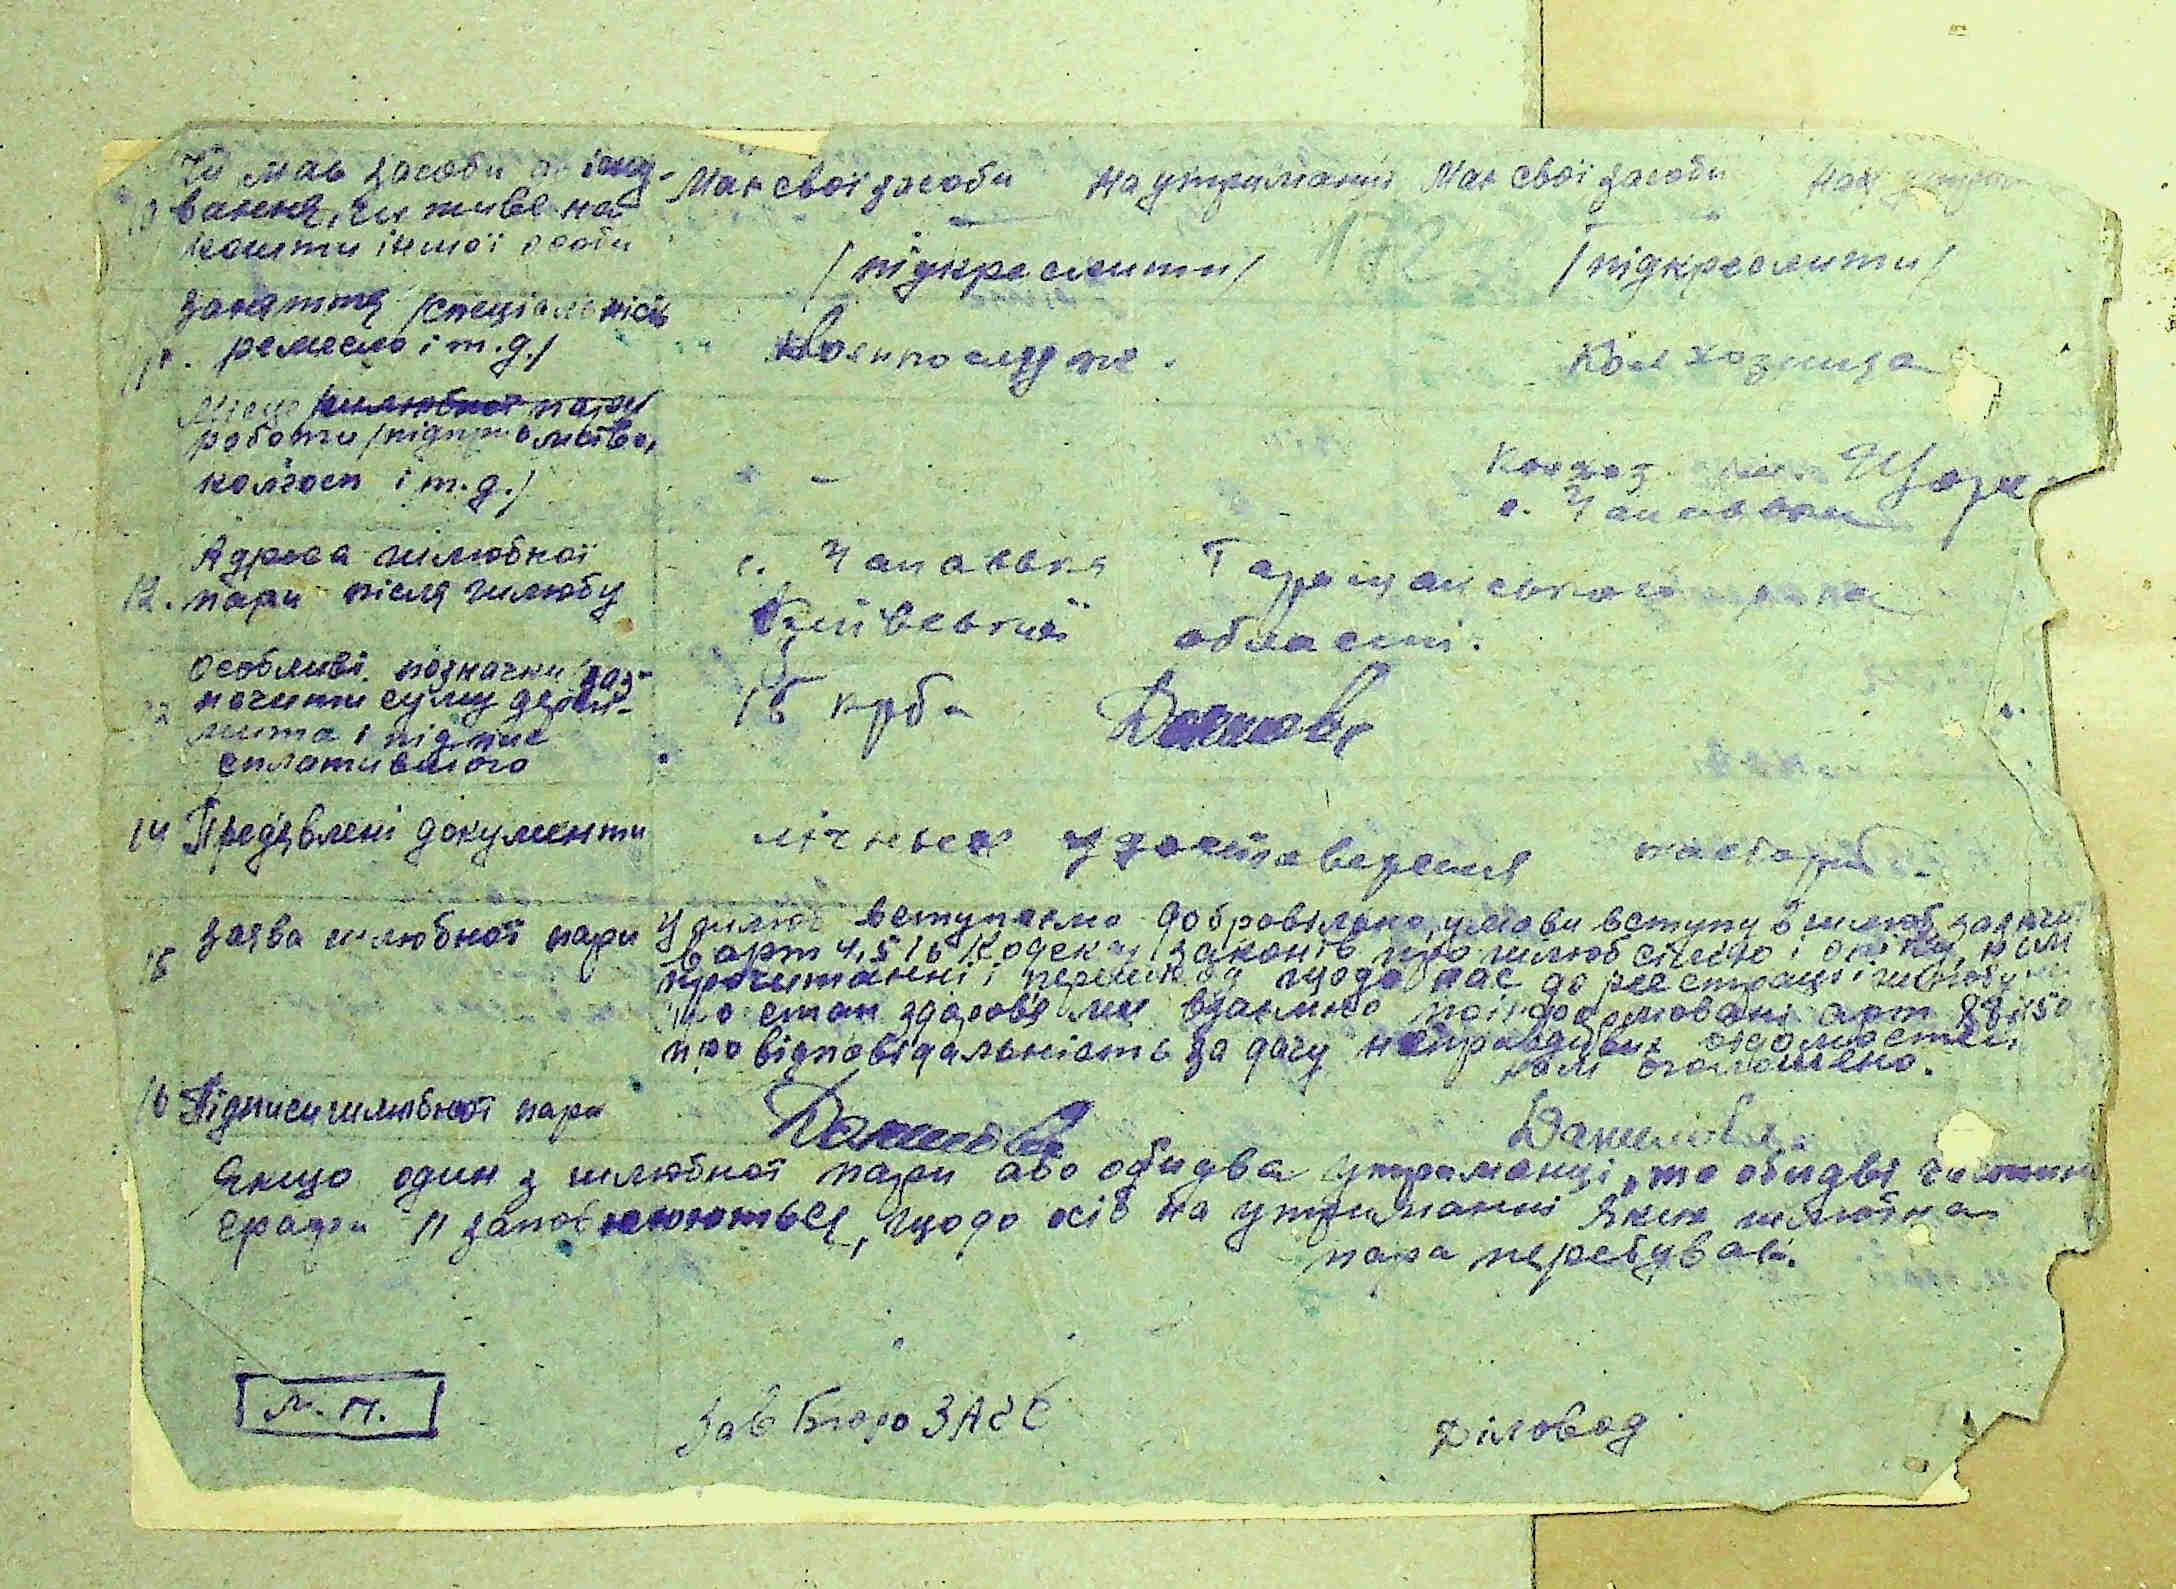 Чи має засоби до існу- Має свої засоби На утриманні Має свої засоби На утрим
10 вання, чи живе на
кошти іншої особи /підкреслити/ /підкреслити/
Заняття /спеціальність
11. ремесло і т.д./ Колхозниця
Місце шлюбної пари
роботи /підприємство, Колхоз
колгосп і т.д./ – с. Чапаєвки
Адреса шлюбної с. Чапаєвка Таращанського
12. пари після шлюбу Київської області.
Особливі позначки /заз-
начити суму держ- 15 крб
мита і підпис
сплатившого
14 Предявлені документи удостоверения паспорт
15 Заява шлюбної пари У шлюб вступаємо добровільно, умови вступу в шлюб, зазначені
в арт 4, 5 і 6 Кодекса законів про шлюб сім'ю і опіку, нам
прочитанні і перешкод щодо нас до реєстрації шлюбу
про стан здоров'я ми взаємно поінформовані арт 88 і 50
про відповідальність за дачу неправдивих відомостей
нам оголошено.
16 Підписи шлюбної пари Данилова
Якщо один з шлюбної пари або обидва утриманці, то обидві частини
графи 11 заповнюються, щодо осіб на утриманні яких шлюбна
пара перебуває.
М.П. Зав Бюро ЗАГС Діловод